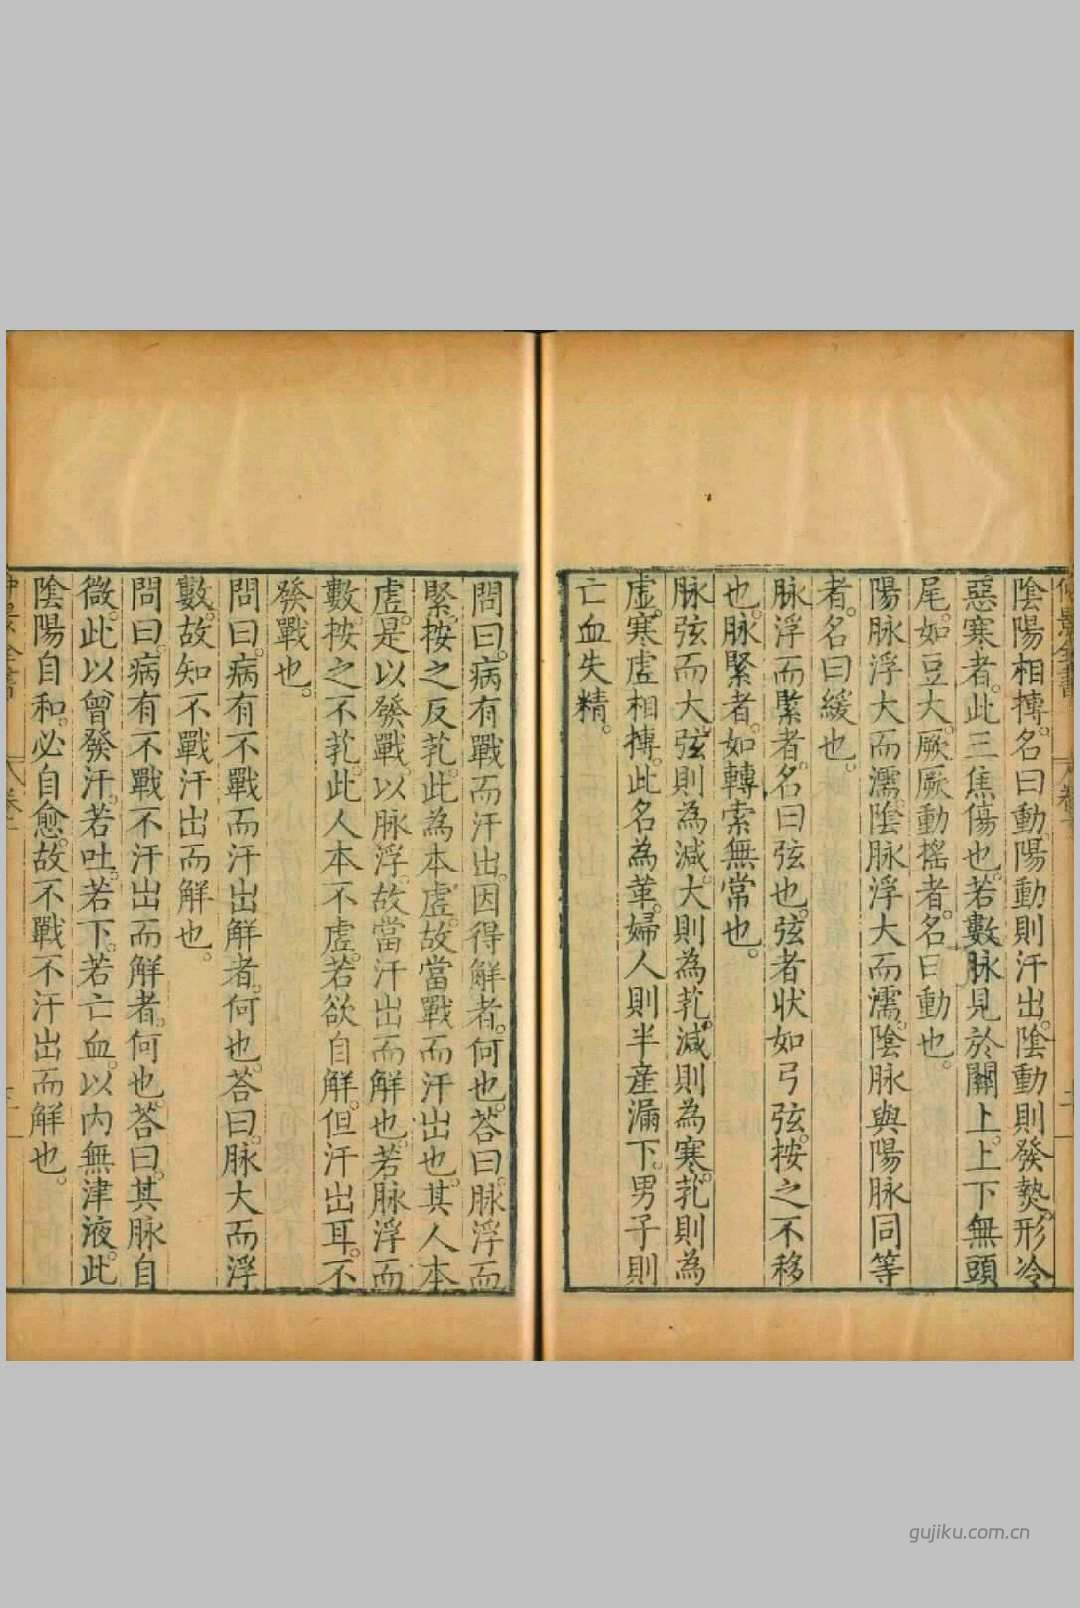 陰陽相摶。名曰動。陽動則汗出。陰動則發熱。形冷
惡寒者。此三焦傷也。若數脉見於關上。上下無頭
尾。如豆大。厥厥動搖者。名曰動也。
陽脉浮大而濡。陰脉浮大而濡。陰脉與陽脉同等
者。名曰緩也。
脉浮而緊者。名曰弦也。弦者狀如弓弦。按之不移
也。脉緊者。如轉索無常也。
脉弦而大。弦則為減。大則為芤。減則為寒。芤則為
虛。寒虛相摶。此名為革。婦人則半産漏下。男子則
亡血失精。
問曰。病有戰而汗出。因得解者。何也。荅曰。脉浮而
緊。按之反芤。此為本虛。故當戰而汗出也。其人本
虛。是以發戰。以脉浮。故當汗出而解也。若脉浮而
數。按之不芤。此人本不虛。若欲自解。但汗出耳。不
發戰也。
問曰。病有不戰而汗出解者。何也。荅曰。脉大而浮
數。故知不戰汗出而解也。
問曰。病有不戰不汗出而解者。何也。荅曰。其脉自
微。此以曾發汗。若吐。若下。若亡血。以内無津液。此
陰陽自和。必自愈。故不戰不汗出而解也。
gujiku.com.cn